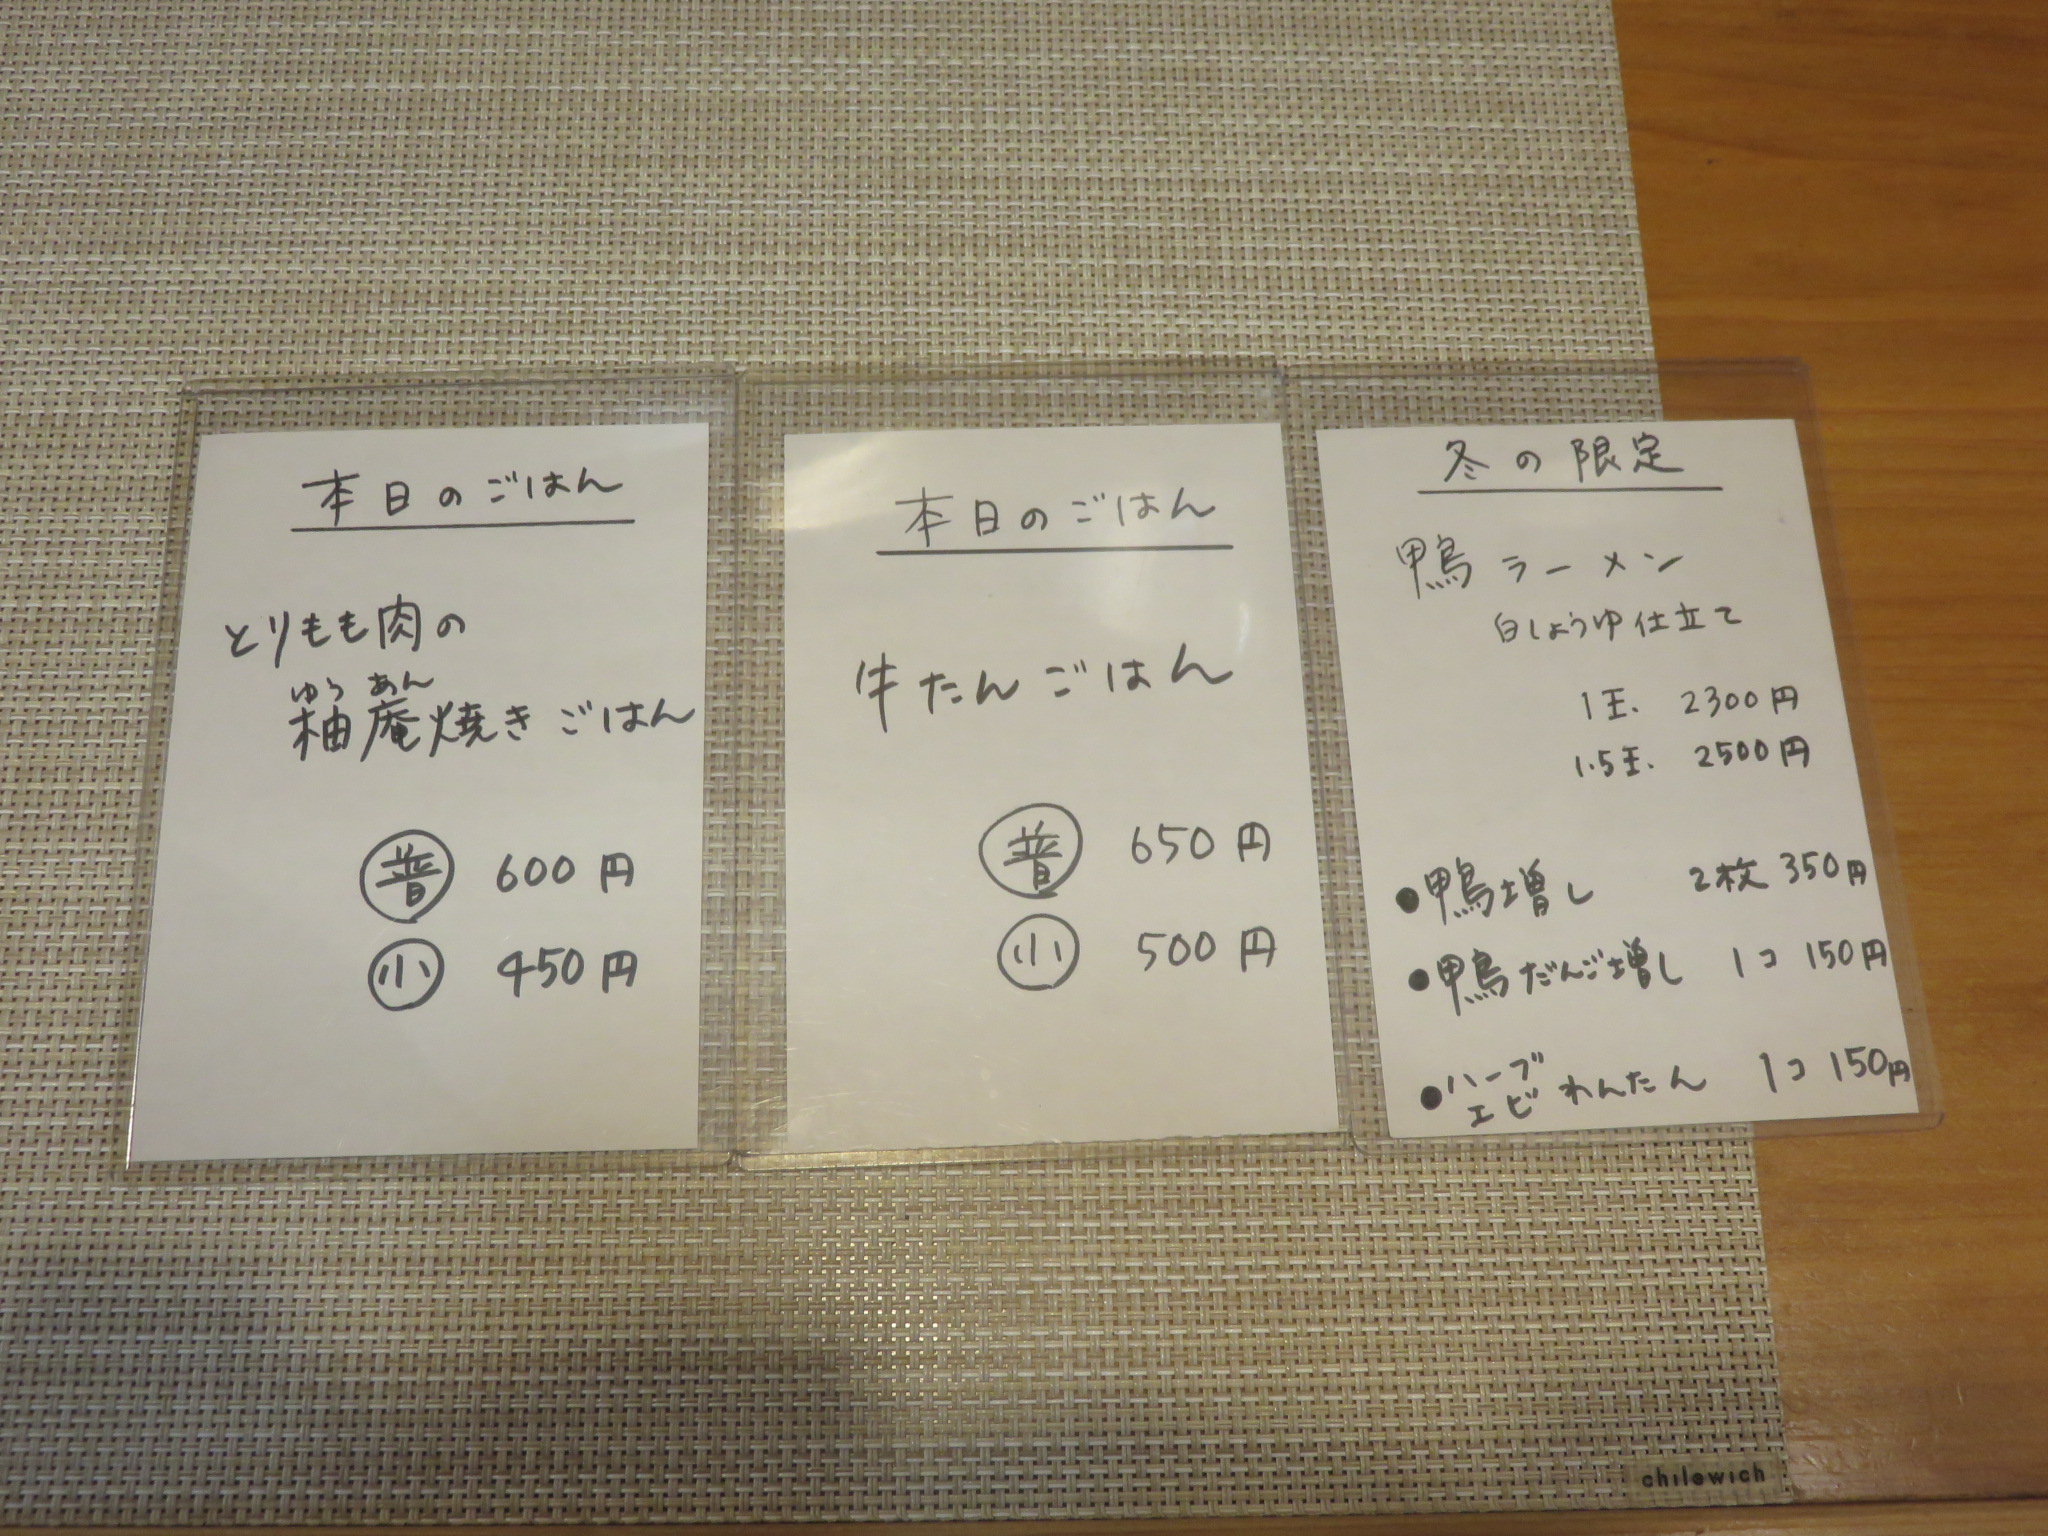 本日のごはん
とりもも肉の
ゆう あん
柚庵焼きごはん
普 600円
小 450円
本日のごはん
牛たんごはん
普 650円
小 500円
冬の限定
鴨ラーメン
白しょうゆ仕立て
1玉. 2300円
1.5玉. 2500円
●鴨増し 2枚 350円
●鴨だんご増し 1コ 150円
●ハーブ
エビわんたん 1コ 150円
chilewich